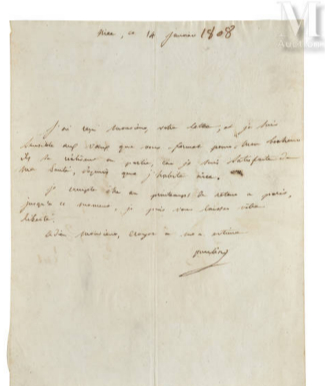 Nice, ce 14 janvier 1808
J'ai reçu monsieur, votre lettre, et je suis
sensible aux vœux que vous formez pour mon bonheur
ils se réalisent en partie, car je suis satisfaite de
ma santé, depuis que j'habite nice.
je compte être au printemps de retour a paris,
jusqu'a ce moment, je puis vous laisser votre
liberté.
adieu monsieur, croyez a mon estime
pauline